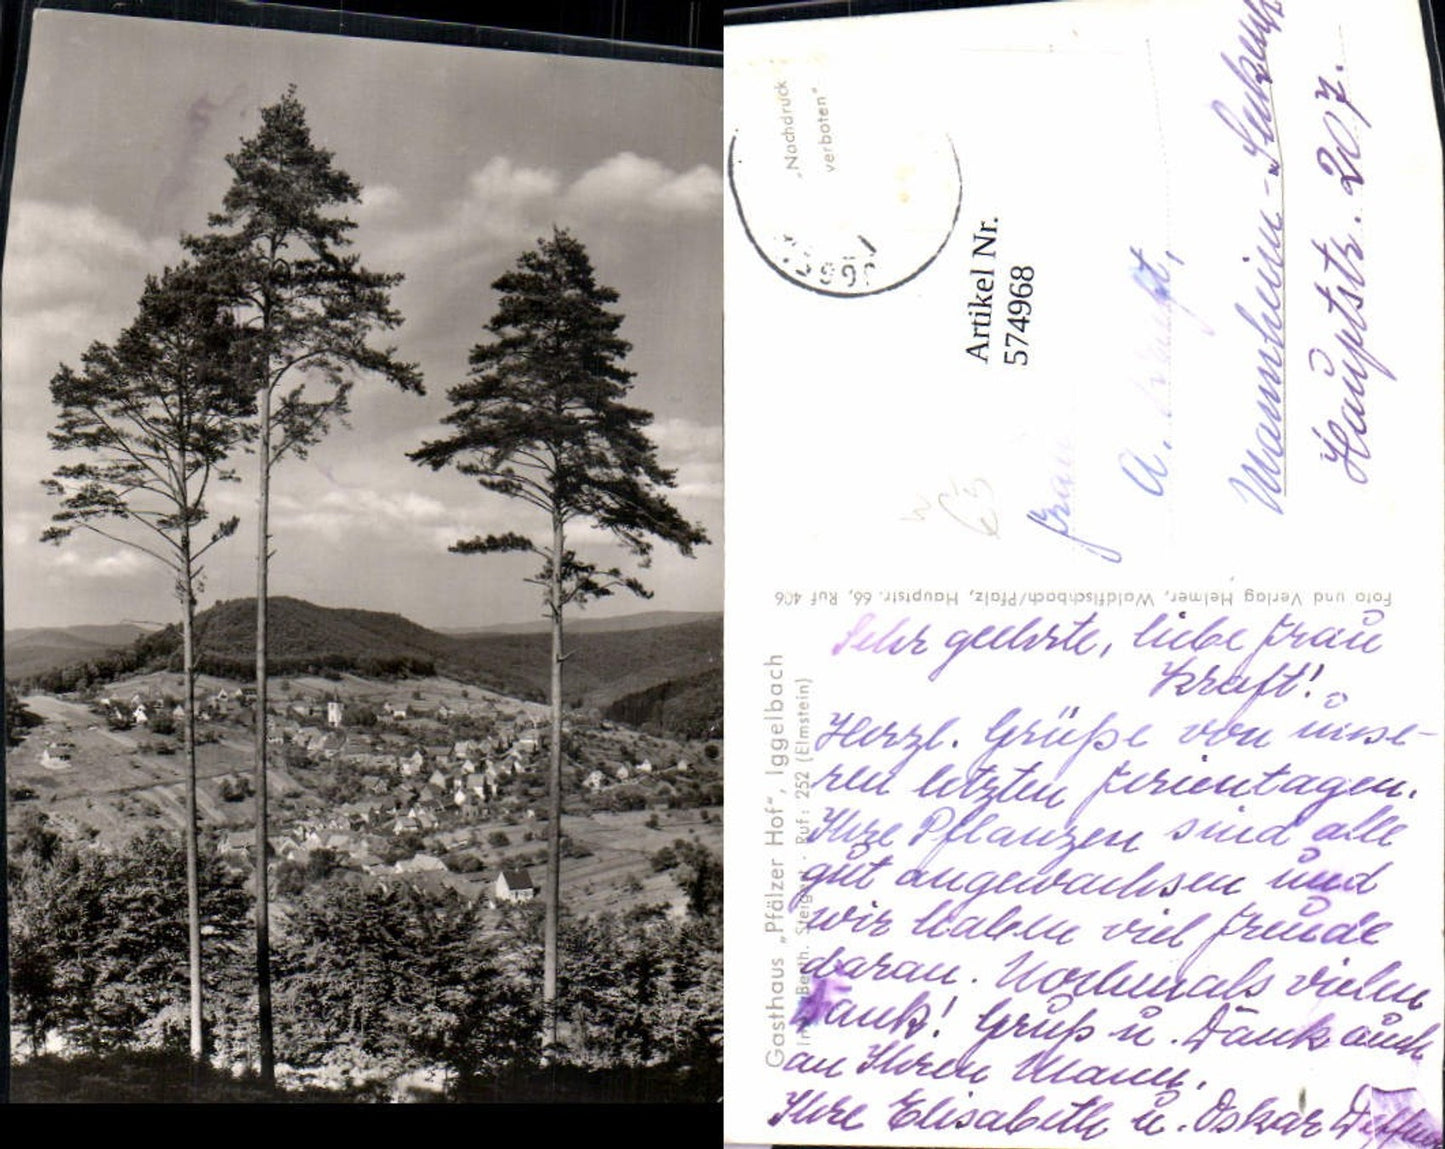 „Nachdruck
verboten“
Artikel Nr.
574968
Frau
A. Kraft,
Mannheim-
Hauptstr. 207.
Foto und Verlag Helmer, Waldfischbach/Pfalz, Hauptstr. 66, Ruf 406
Gasthaus „Pfälzer Hof“, Iggelbach
Inh. Berth. Steiger · Ruf: 252 (Elmstein)
Sehr geehrte, liebe Frau
Kraft!
Herzl. Grüße von unse-
ren letzten Ferientagen.
Ihre Pflanzen sind alle
gut angewachsen und
wir haben viel Freude
daran. Nochmals vielen
Dank! Gruß u. Dank auch
an Ihren Mann.
Ihre Elisabeth u. Oskar